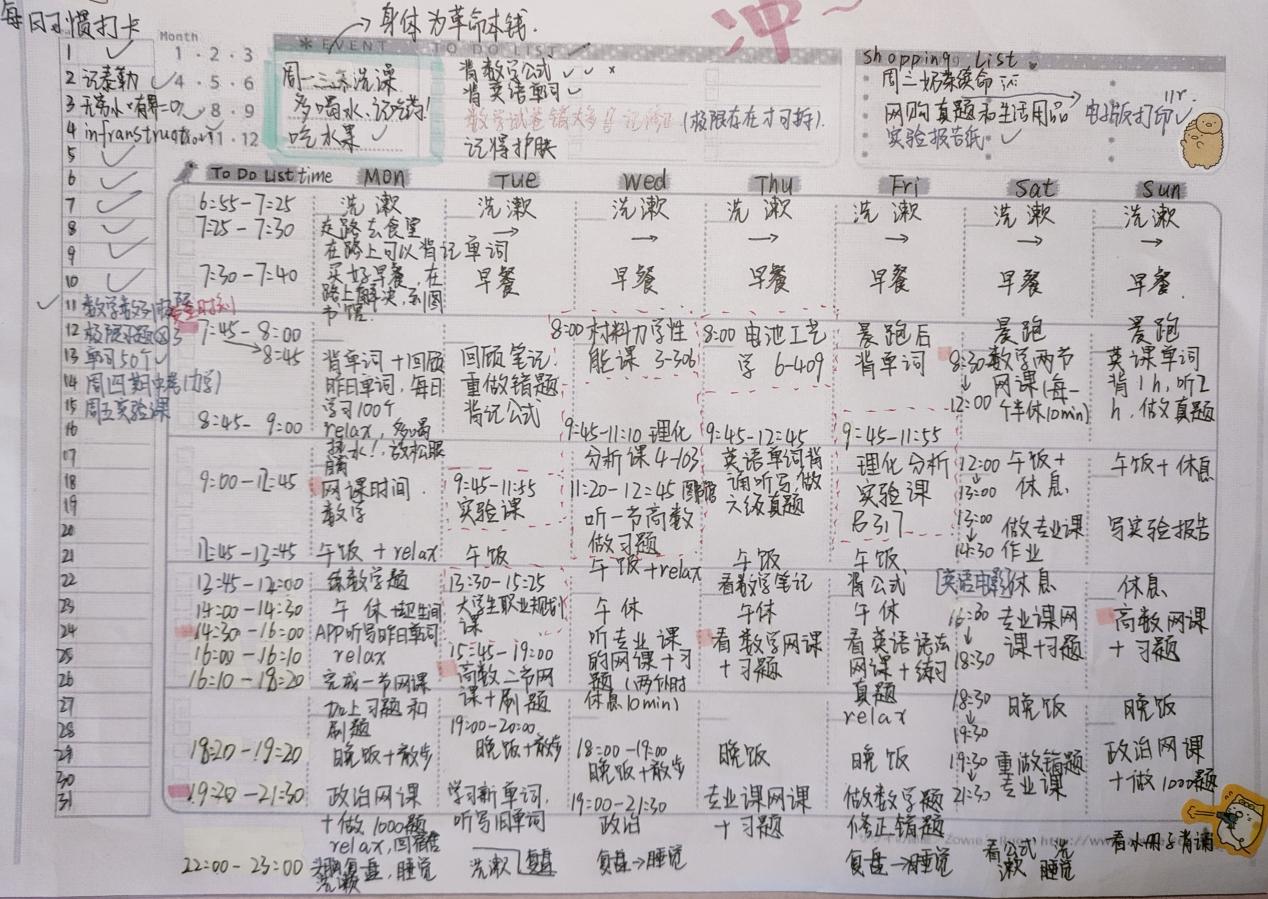 每日习惯打卡
身体为革命本钱.
冲
Month
1·2·3
4·5·6
8·9
11·12
* EVENT TO DO LIST
周一三六洗澡
多喝水、记吃药!
吃水果
背数学公式
背英语单词
(极限存在才可拆).
记得护肤
shopping List
网购真题和生活用品
电子版打印
实验报告纸
1
2 记泰勒
3 无穷小×有界=0
4 infranstruction
5
6
7
8
9
10
11
12 极限习题
13 单词50个
14 周四期中考(力学)
15 周五实验课
16
17
18
19
20
21
22
23
24
25
26
27
28
29
30
31
To Do List time Mon Tue Wed Thu Fri Sat Sun
6:55-7:25 洗漱 洗漱 洗漱 洗漱 洗漱 洗漱 洗漱
7:25-7:30 走路去食堂 → → → → → →
在路上可以背记单词
7:30-7:40 买好早餐,在 早餐 早餐 早餐 早餐 早餐 早餐.
路上解决,到图
书馆.
7:45-8:00
8:45
背单词+回顾
昨日单词,每日
学习100个
回顾笔记
重做错题
背记公式
8:00 材料力学性
能课 3-306
8:00 电池工艺
学 6-409
晨跑后
背单词
晨跑
8:30 数学两节
↓ 网课(每一
12:00 个半休10min)
晨跑
英课单词
背1h,听2
h,做真题
8:45-9:00 relax,多喝
热水!,放松眼
睛
9:00-12:45 网课时间.
数学
9:45-11:55
实验课
9:45-11:10 理化
分析课 4-103
11:20-12:45
听一节高数
做习题
9:45-12:45
英语单词背
诵听写,做
六级真题
9:45-11:55
理化分析
实验课
6317
12:00 午饭+
13:00 休息
13:00 做专业课
↓
14:30 作业
午饭+休息
写实验报告
12:45-13:45 午饭+relax 午饭 午饭+relax 午饭 午饭
12:45-14:00 练数学题
13:30-15:25
大学生职业规划
课
看数学笔记 背公式 [英语电影]休息 休息
14:00-14:30 午休+卫生间 午休 午休 午休
14:30-16:00 APP听写昨日单词
16:00-16:10 relax
16:10-18:20 完成一节网课
加上习题和
刷题
15:45-19:00
高数二节网
课+刷题
听专业课
的网课+习
题(两个小时
休息10min)
看数学网课
+习题
看英语语法
网课+练习
真题
relax
16:30 专业课网
↓ 课+习题
18:30
高数网课
+习题
18:30 晚饭
↓
19:30
晚饭
18:20-19:20 晚饭+散步
19:00-20:00
晚饭+散步
18:00-19:00
晚饭+散步
晚饭
晚饭
19:30 重做错题
↓ 专业课
21:30
政治网课
+做1000题
19:20-21:30 政治网课
+做1000题
relax,回宿舍
学习新单词,
听写旧单词
19:00-21:30
政治
专业课网课
+习题
做数学题
修正错题
22:00-23:00
复盘,睡觉
洗漱
洗漱 复盘
复盘→睡觉
复盘→睡觉
看公式 洗
漱 睡觉
看小册子背诵